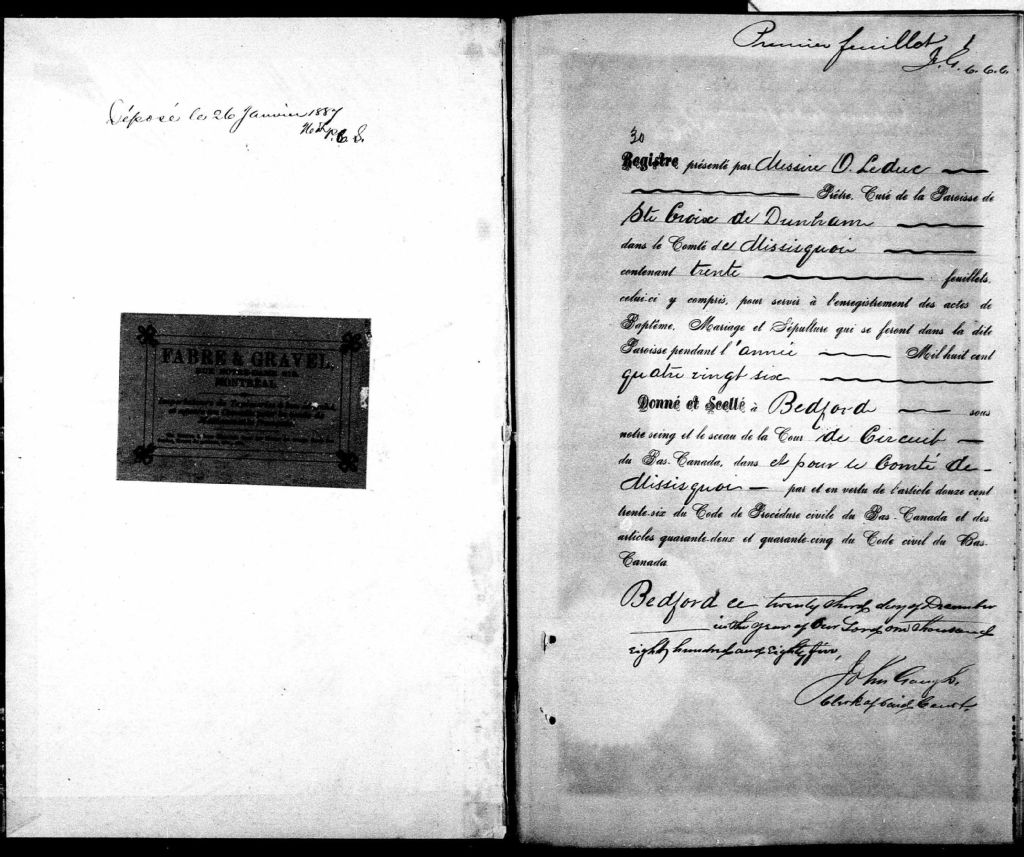 Déposé le 26 Janvier 1887
P. C. S.
FABRE & GRAVEL,
RUE NOTRE-DAME 219,
MONTRÉAL
Premier feuillet
J. G. C. C. C.
30
Registre présenté par Messire O. Leduc
Prêtre, Curé de la Paroisse de
Ste Croix de Dunham
dans le Comté de Missisquoi
contenant trente feuillets,
celui-ci y compris, pour servir à l'enregistrement des actes de
Baptême, Mariage et Sépulture qui se feront dans la dite
Paroisse pendant l'année Mil huit cent
quatre vingt six
Donné et Scellé à Bedford sous
notre seing et le sceau de la Cour de Circuit
du Bas-Canada, dans et pour le Comté de
Missisquoi par et en vertu de l'article douze cent
trente-six du Code de Procédure civile du Bas-Canada et des
articles quarante-deux et quarante-cinq du Code civil du Bas-
Canada
Bedford ce twenty third day of December
in the year of Our Lord one thousand
eight hundred and Eighty five,
John Gough
Clerk of said Court.